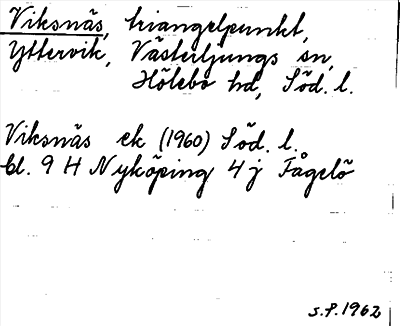 Viksnäs, triangelpunkt,
Yttervik, Västerljungs sn,
Hölebo hd, Söd. l.
Viksnäs ek (1960) Söd. l.
bl. 9 H Nyköping 4 j Fågelö
S.P. 1962